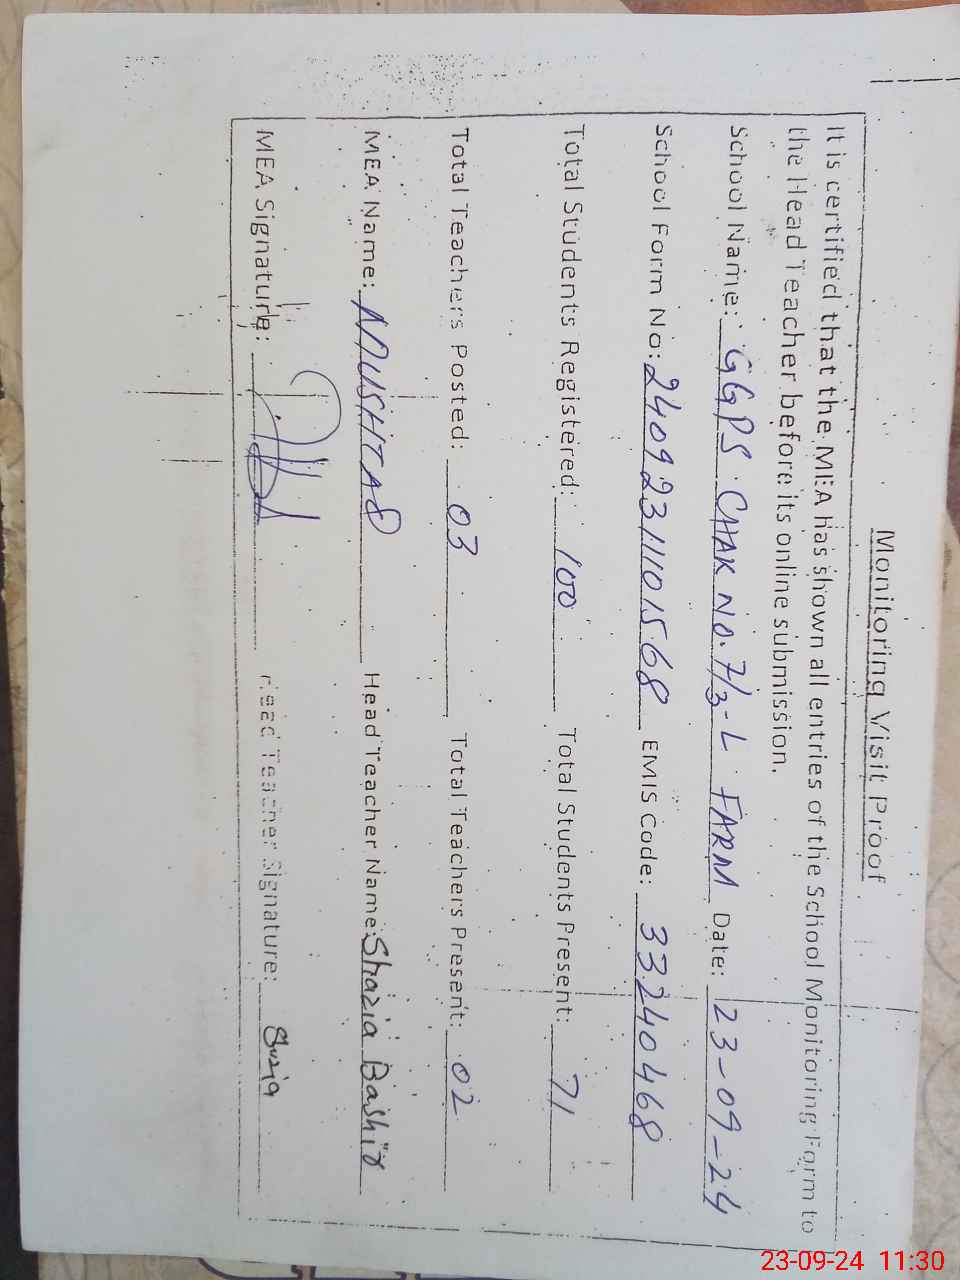 Monitoring Visit Proof
It is certified that the MEA has shown all entries of the School Monitoring Form to
the Head Teacher before its online submission.
School Name: GGPS CHAK NO. 7/3-L FARM Date: 23-09-24
School Form No: 240923111101568 EMIS Code: 33240468
Total Students Registered: 100 Total Students Present: 71
Total Teachers Posted: 03 Total Teachers Present: 02
MEA Name: Head Teacher Name: Shazia Bashir
MEA Signature: Head Teacher Signature:
23-09-24 11:30